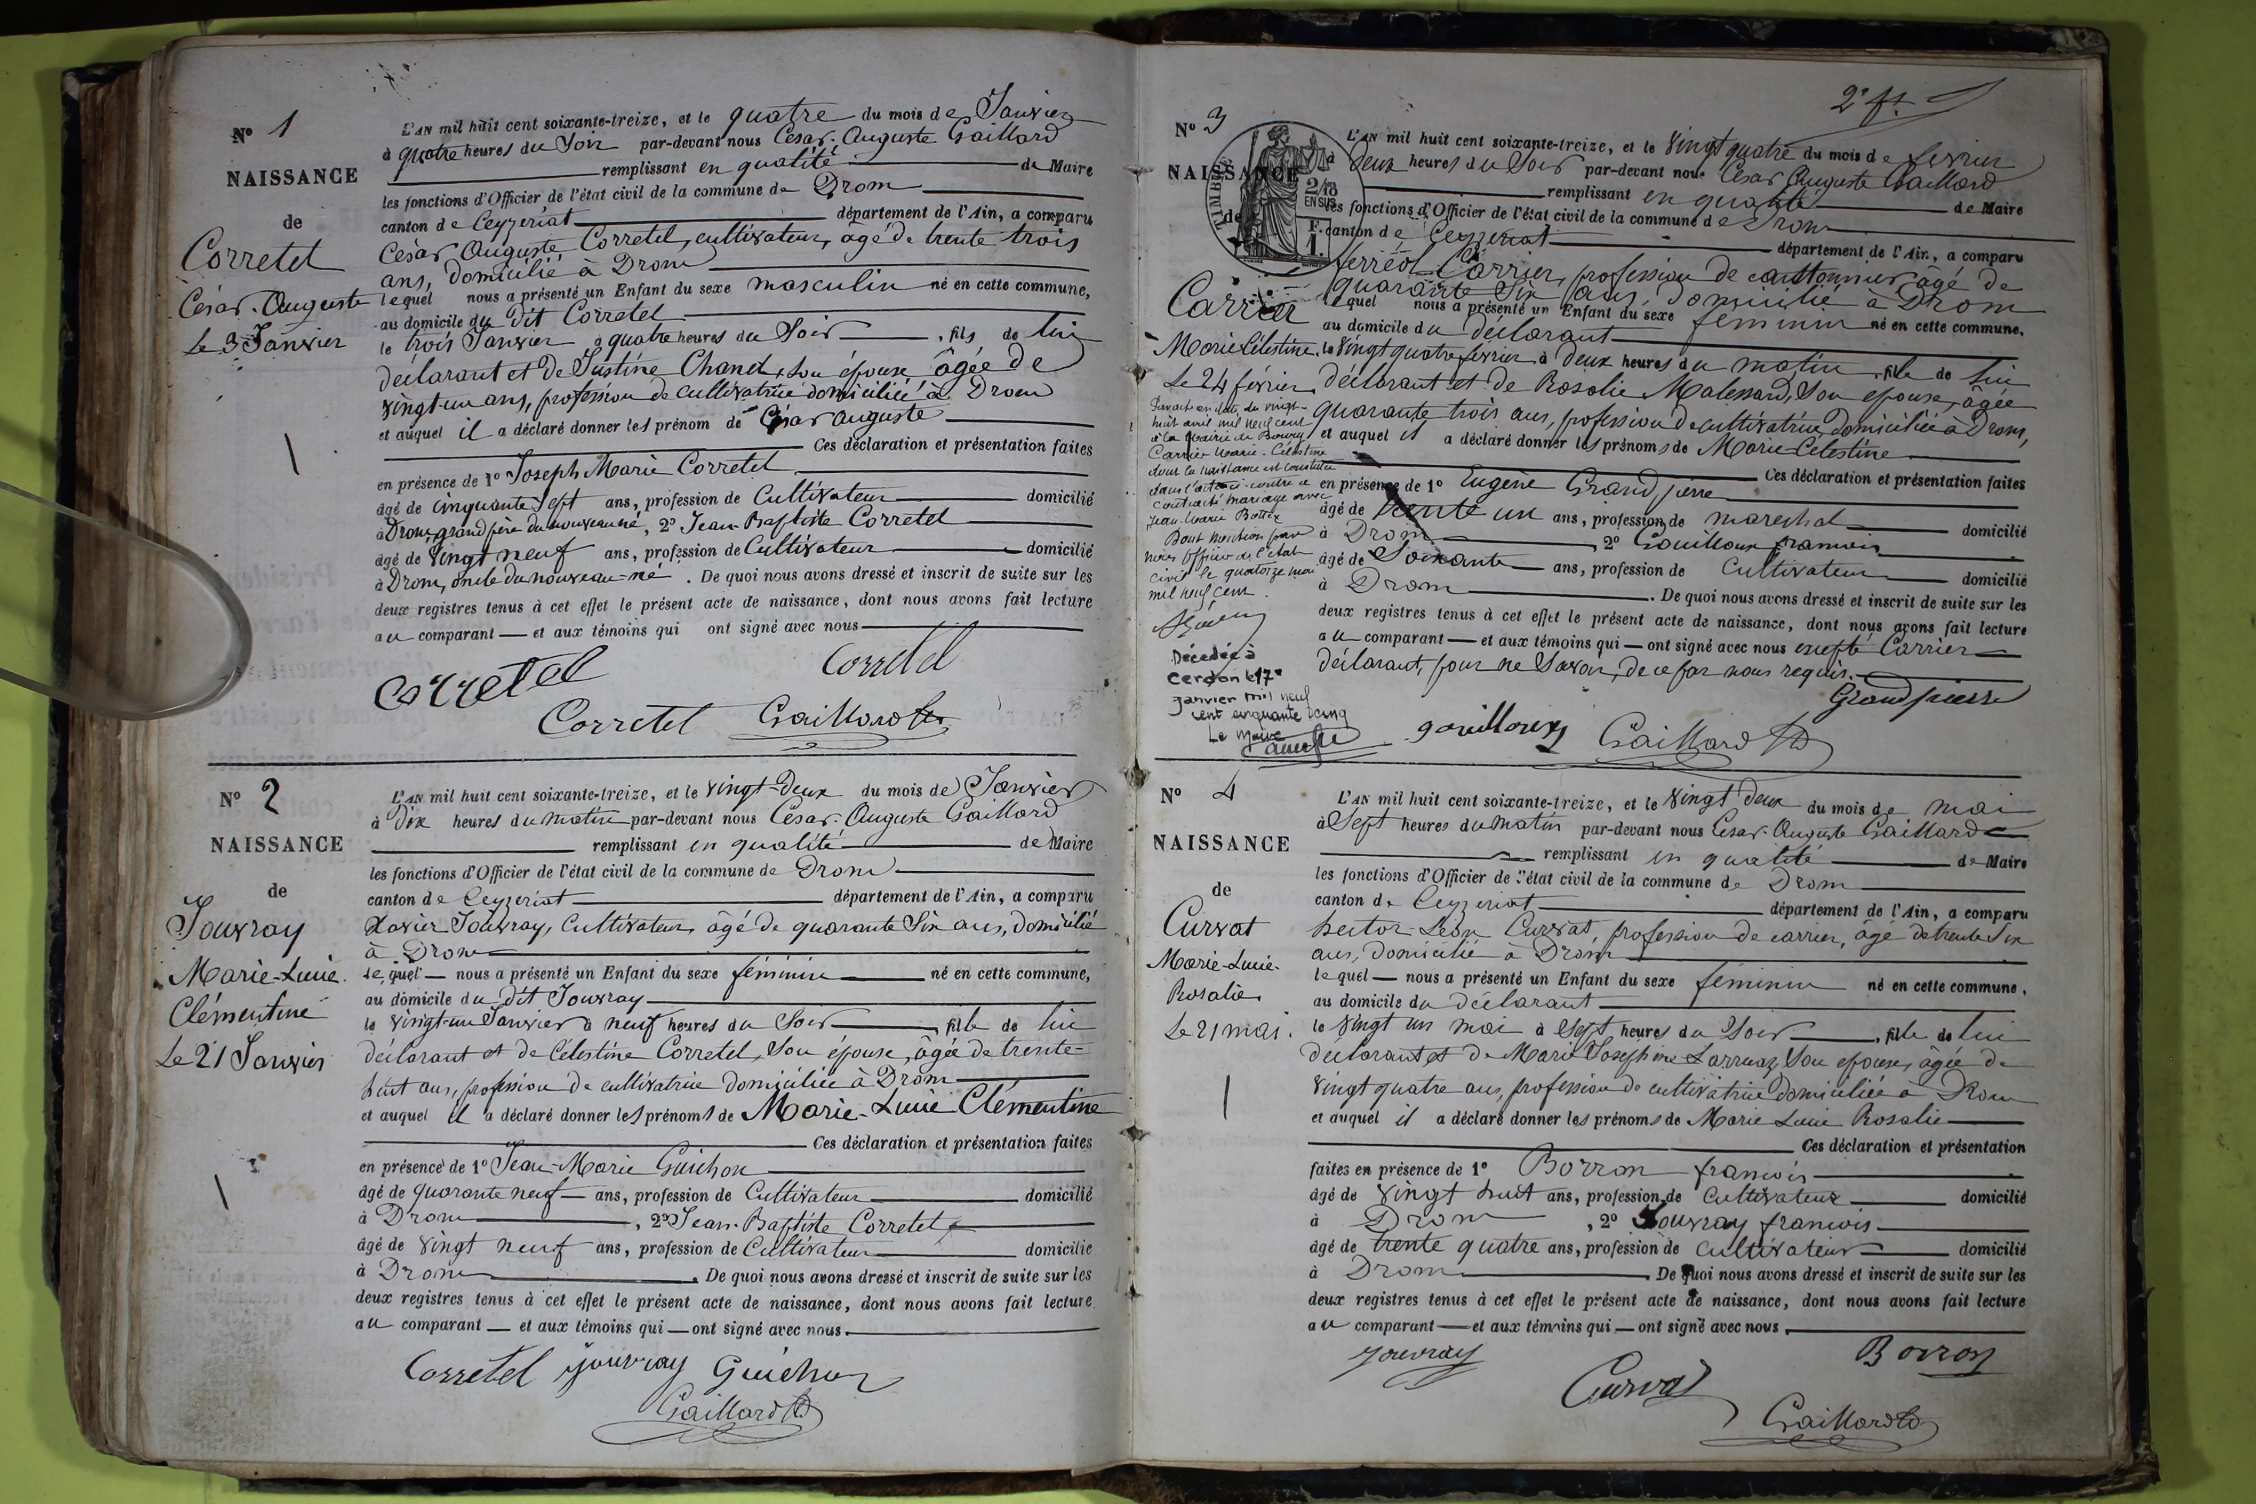 N° 1
NAISSANCE
de
Corretel
César-Auguste
Le 3 Janvier
L'AN mil huit cent soixante-treize, et le quatre du mois de Janvier
à quatre heures du Soir par-devant nous César-Auguste Gaillard
remplissant en qualité de Maire
les fonctions d'Officier de l'état civil de la commune de Drom
canton de Ceyzeriat département de l'Ain, a comparu
César Auguste Corretel, cultivateur, âgé de trente trois
ans, domicilié à Drom
lequel nous a présenté un Enfant du sexe masculin né en cette commune,
au domicile du dit Corretel
le trois Janvier à quatre heures du Soir, fils de lui
déclarant et de Justine Chanel, son épouse âgée de
vingt-un ans, profession de cultivatrice domiciliée à Drom
et auquel il a déclaré donner les prénom de César auguste
Ces déclaration et présentation faites
en présence de 1° Joseph Marie Corretel
âgé de cinquante Sept ans, profession de Cultivateur domicilié
à Drom, grand père du nouveau né, 2° Jean-Baptiste Corretel
âgé de vingt neuf ans, profession de Cultivateur domicilié
à Drom, oncle du nouveau-né. De quoi nous avons dressé et inscrit de suite sur les
deux registres tenus à cet effet le présent acte de naissance, dont nous avons fait lecture
au comparant et aux témoins qui ont signé avec nous
Corretel Corretel
Corretel Gaillard
N° 2
NAISSANCE
de
Jouvray
Marie-Lucie
Clémentine
Le 21 Janvier
L'AN mil huit cent soixante-treize, et le vingt-deux du mois de Janvier
à dix heures du matin par-devant nous César-Auguste Gaillard
remplissant en qualité de Maire
les fonctions d'Officier de l'état civil de la commune de Drom
canton de Ceyzeriat département de l'Ain, a comparu
Xavier Jouvray, Cultivateur, âgé de quarante Six ans, domicilié
à Drom
lequel nous a présenté un Enfant du sexe féminin né en cette commune,
au domicile du dit Jouvray
le vingt-un Janvier à neuf heures du Soir, fille de lui
déclarant et de Célestine Corretel, Son épouse, âgée de trente-
huit ans, profession de cultivatrice domiciliée à Drom
et auquel il a déclaré donner les prénoms de Marie-Lucie Clémentine
Ces déclaration et présentation faites
en présence de 1° Jean-Marie Guichon
âgé de quarante neuf ans, profession de Cultivateur domicilié
à Drom, 2° Jean-Baptiste Corretel
âgé de vingt neuf ans, profession de Cultivateur domicilié
à Drom. De quoi nous avons dressé et inscrit de suite sur les
deux registres tenus à cet effet le présent acte de naissance, dont nous avons fait lecture
au comparant et aux témoins qui ont signé avec nous.
Corretel Jouvray Guichon
Gaillard
2e ft
N° 3
NAISSANCE
de
TIMBRE
2/10
EN SUS
F.
1.
Carrier
Marie-Célestine
Le 24 février
Par acte en date du vingt-
huit avril mil neuf cent
à la Mairie de Bourg
Carrier Marie-Célestine
dont la naissance est constatée
dans l'acte ci-contre a
contracté mariage avec
Jean-Marie
Dont mention par
nous Officier de l'état
civil le quatorze mai
mil neuf cent.
Décedée à
Cerdon le 17
janvier mil neuf
cent cinquante cinq
Le Maire
L'AN mil huit cent soixante-treize, et le vingt quatre du mois de fevrier
à deux heures du Soir par-devant nous César Auguste Gaillard
remplissant en qualité de Maire
les fonctions d'Officier de l'état civil de la commune de Drom
canton de Ceyzeriat département de l'Ain, a comparu
ferréol Carrier, profession de cantonnier âgé de
quarante Six ans, domicilié à Drom
lequel nous a présenté un Enfant du sexe féminin né en cette commune,
au domicile du déclarant
le vingt quatre fevrier à deux heures du matin, fille de lui
déclarant et de Rosalie Malessard, Son épouse, âgée
quarante trois ans, profession de cultivatrice domiciliée à Drom,
et auquel il a déclaré donner les prénoms de Marie-Célestine
Ces déclaration et présentation faites
en présence de 1° Eugène Grandpierre
âgé de trente un ans, profession de marechal domicilié
à Drom, 2° Gouilloux francois
âgé de Soixante ans, profession de Cultivateur domicilié
à Drom. De quoi nous avons dressé et inscrit de suite sur les
deux registres tenus à cet effet le présent acte de naissance, dont nous avons fait lecture
au comparant et aux témoins qui ont signé avec nous excepté Carrier
déclarant, pour ne Savoir, de ce par nous requis.
Grandpierre
gouilloux Gaillard
N° 4
NAISSANCE
de
Curvat
Marie-Lucie-
Rosalie
Le 21 mai.
L'AN mil huit cent soixante-treize, et le vingt deux du mois de mai
à Sept heures du matin par-devant nous César-Auguste Gaillard
remplissant en qualité de Maire
les fonctions d'Officier de l'état civil de la commune de Drom
canton de Ceyzeriat département de l'Ain, a comparu
hector-Léon Curvat, profession de carrier, âgé de trente Six
ans, domicilié à Drom
lequel nous a présenté un Enfant du sexe féminin né en cette commune,
au domicile du déclarant
le vingt un mai à Sept heures du Soir, fille de lui
déclarant et de Marie Josephine Larruaz Son epouse, âgée de
vingt quatre ans, profession de cultivatrice domiciliée à Drom
et auquel il a déclaré donner les prénoms de Marie Lucie Rosalie
Ces déclaration et présentation
faites en présence de 1° Borron francois
âgé de vingt huit ans, profession de Cultivateur domicilié
à Drom, 2° Jouvray francois
âgé de trente quatre ans, profession de cultivateur domicilié
à Drom. De quoi nous avons dressé et inscrit de suite sur les
deux registres tenus à cet effet le présent acte de naissance, dont nous avons fait lecture
au comparant et aux témoins qui ont signé avec nous.
Jouvray Borron
Curvat
Gaillard